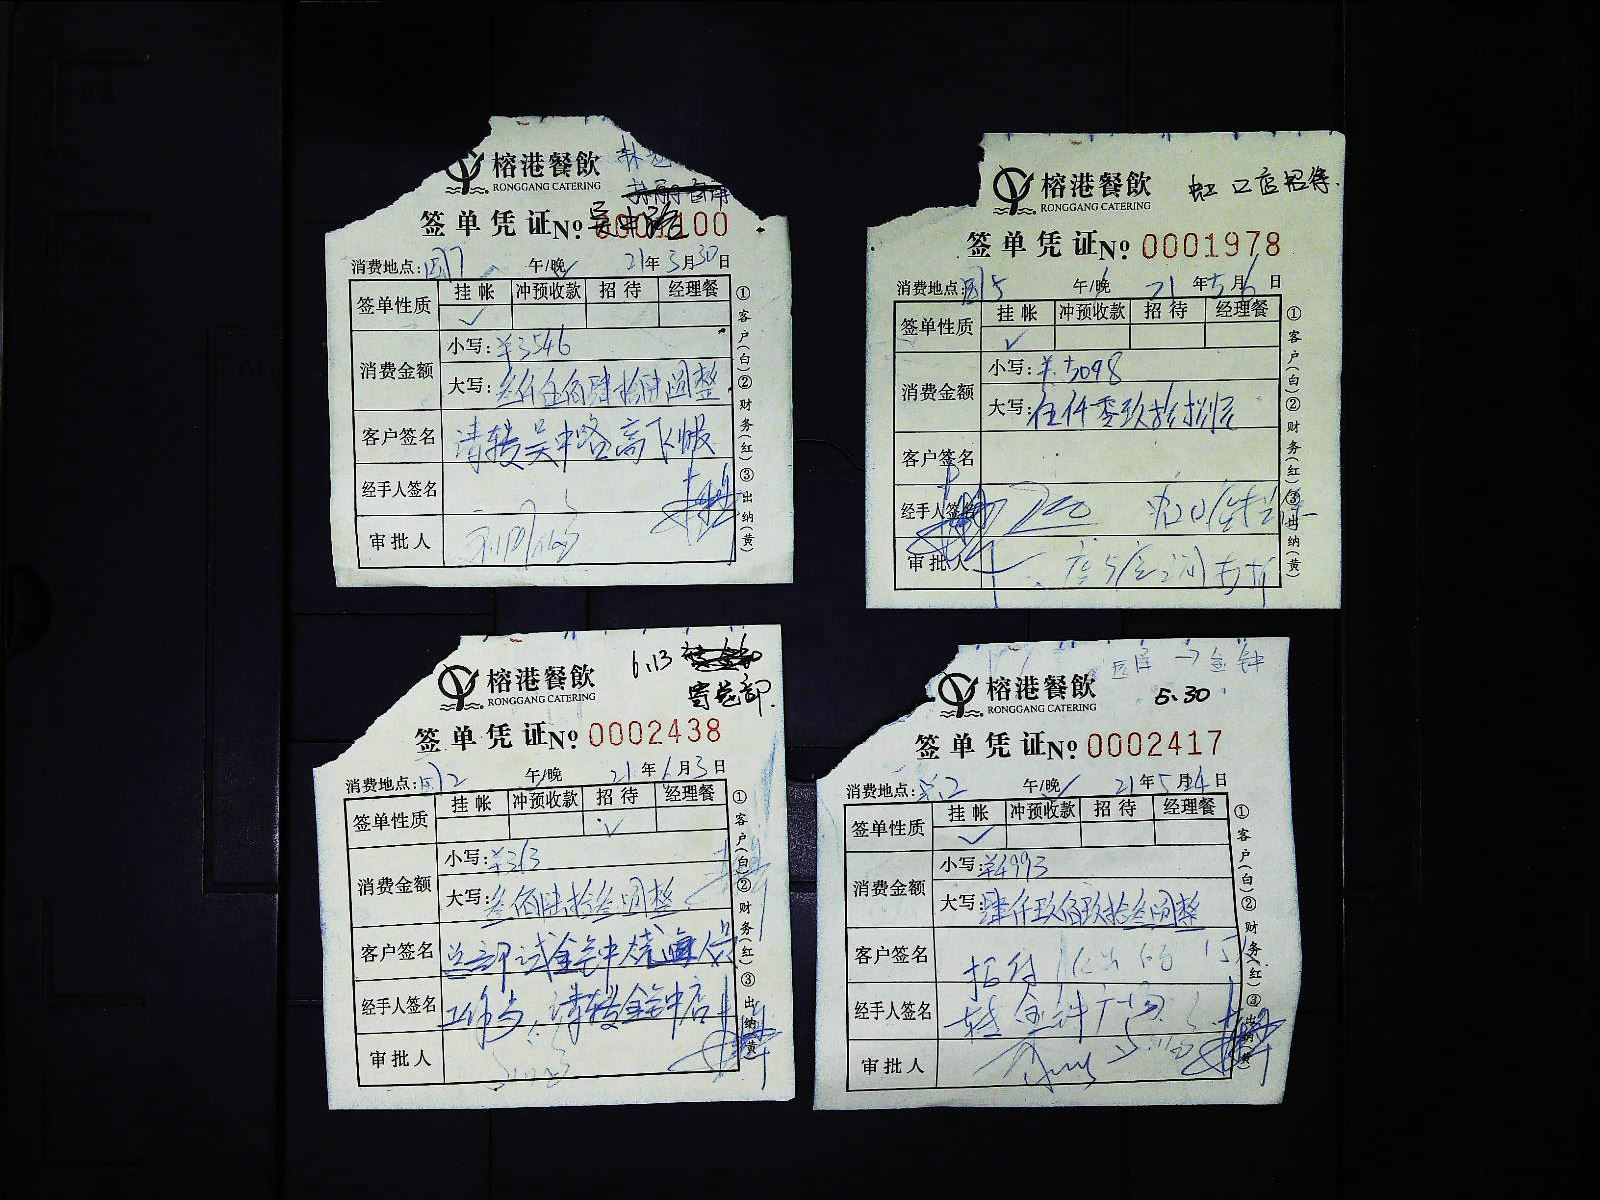 榕港餐飲
RONGGANG CATERING
吴中路
签单凭证 No. 100
消费地点: 午/晚 21年3月30日
签单性质 挂帐 冲预收款 招待 经理餐
✓
消费金额 小写: ¥3546
大写: 叁仟伍佰肆拾陆圆整
客户签名 请转吴中路高飞帐
经手人签名
审批人
①客户(白)②财务(红)③出纳(黄)
榕港餐飲 虹口店招待
RONGGANG CATERING
签单凭证 No. 0001978
消费地点: 午/晚 21年5月6日
签单性质 挂帐 冲预收款 招待 经理餐
✓
消费金额 小写: ¥5098
大写: 伍仟零玖拾捌
客户签名
经手人签名
审批人
①客户(白)②财务(红)③出纳(黄)
6.13
榕港餐飲 寄总部
RONGGANG CATERING
签单凭证 No. 0002438
消费地点: 午/晚 21年6月3日
签单性质 挂帐 冲预收款 招待 经理餐
✓
消费金额 小写:
大写: 叁佰陆拾叁圆整
客户签名 总部试金钟烧
经手人签名 请转金钟店
审批人
①客户(白)②财务(红)③出纳(黄)
→金钟
榕港餐飲 5.30
RONGGANG CATERING
签单凭证 No. 0002417
消费地点: 午/晚 21年5月 日
签单性质 挂帐 冲预收款 招待 经理餐
✓
消费金额 小写: ¥4993
大写: 肆仟玖佰玖拾叁圆整
客户签名 招待
经手人签名 转金钟广场
审批人
①客户(白)②财务(红)③出纳(黄)